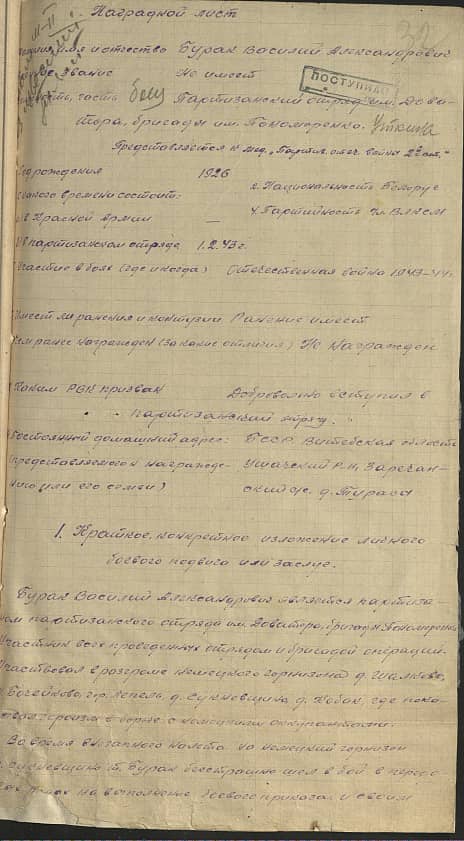 Наградной лист
имя и отчество Бурак Василий Александрович
звание Не имеет
ПОСТУПИЛО
часть боец Партизанский отряд им. Дова-
тора, бригады им. Пономаренко.
Представляется к мед. „Партиз. отеч. войны 2ой ст."
Год рождения 1926
2. Национальность Белорус
какого времени состоит:
в Красной Армии —
4. Партийность чл. ВЛКСМ
В партизанском отряде 1.2.43г.
Участие в боях (где и когда) Отечественная война 1943-44г.
Имеет ли ранения и контузии Ранение имеет
Чем ранее награжден (за какие отличия) Не награжден
Каким РВК призван Добровольно вступил в
партизанский отряд.
Постоянный домашний адрес: БССР Витебская область
(представляемого к награжде- Ушачский р-н, Заречан-
нию или его семьи) ский с/с. д. Тураси
1. Краткое, конкретное изложение личного
боевого подвига или заслуг.
Бурак Василий Александрович является партиза-
ном партизанского отряда им. Доватора, бригады Пономаренко
Участник всех проведенных отрядом и бригадой операций.
Участвовал в разгроме немецкого гарнизона д.
гор. Лепель, д. где пока-
зал героизм в борьбе с немецкими оккупантами.
Во время внезапного налета на немецкий гарнизон
т. Бурак бесстрашно шел в бой, в передо-
вых на выполнение боевого приказа и своим